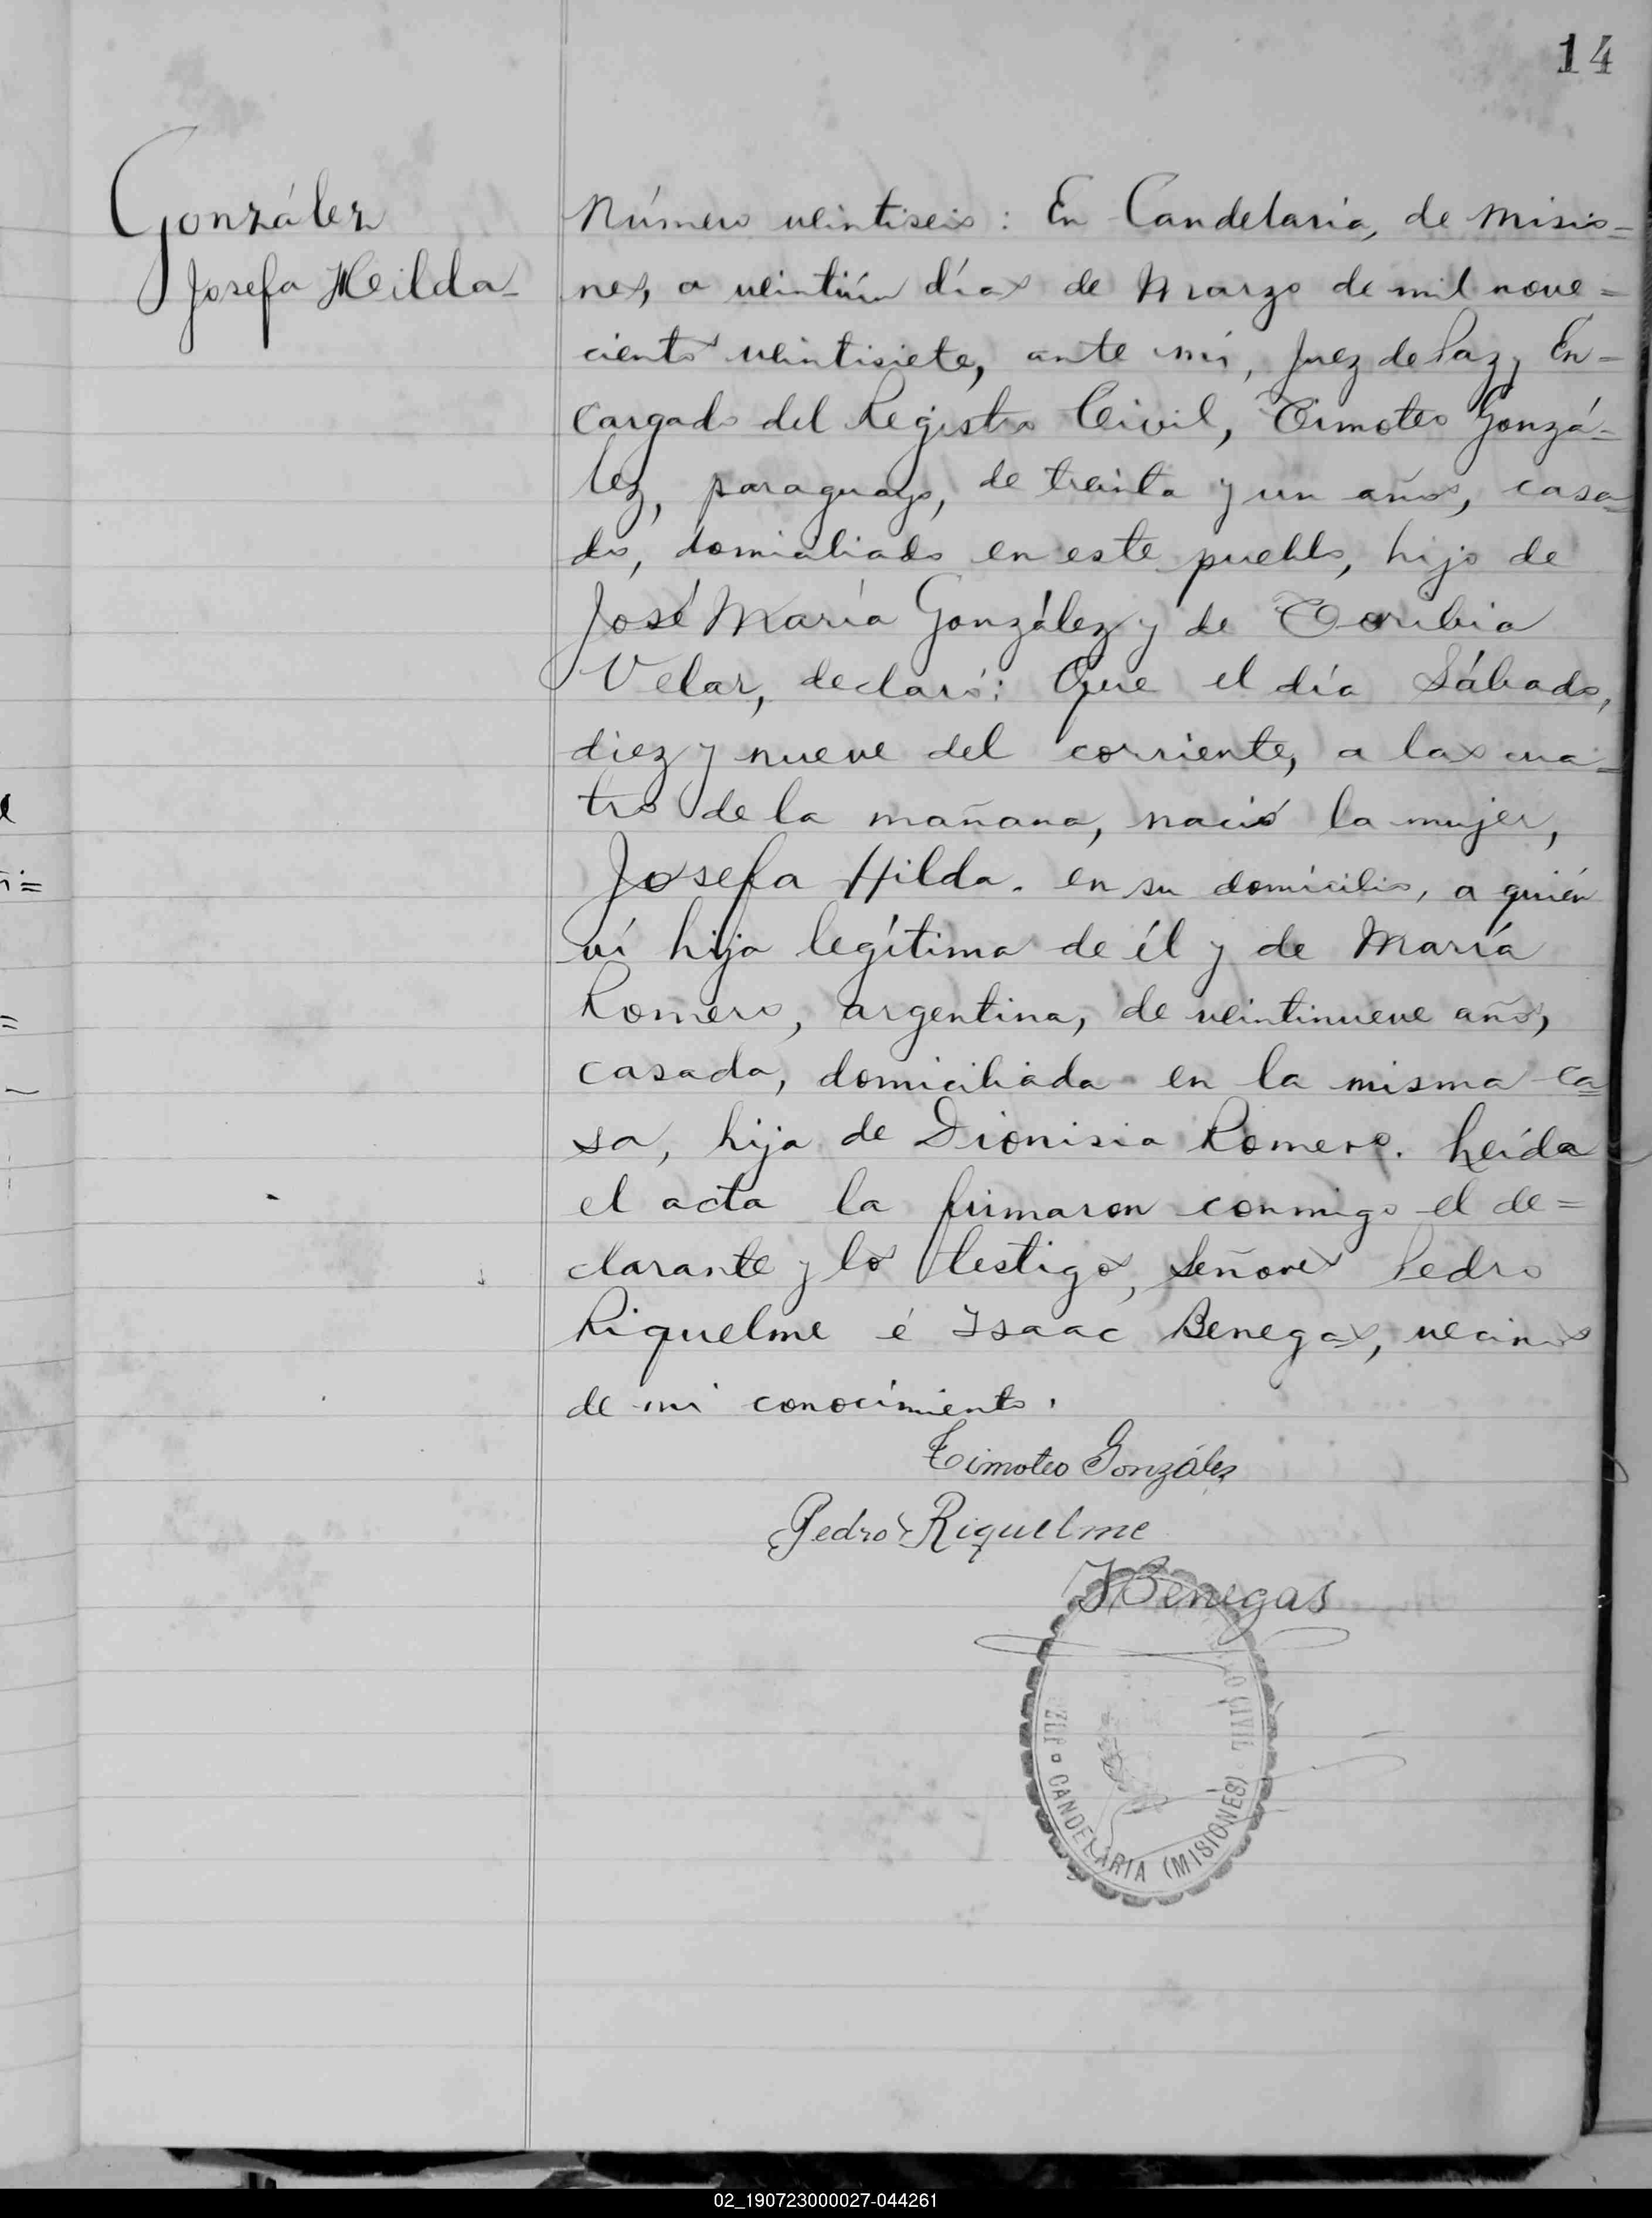 14
González
Josefa Hilda
Número veintiseis: En Candelaria, de Misio=
nes, a veintiún días de Marzo de mil nove=
cientos veintisiete, ante mi, Juez de Paz y En=
cargado del Registro Civil, Timoteo Gonzá=
lez, paraguayo, de treinta y un años, casa=
do, domiciliado en este pueblo, hijo de
José María González y de Toribia
Velar, declaró: Que el día Sábado,
diez y nueve del corriente, a las cua=
tro de la mañana, nació la mujer,
Josefa Hilda. en su domicilio, a quién
ví hija legítima de él y de María
Romero, argentina, de veintinueve años,
casada, domiciliada en la misma ca=
sa, hija de Dionisia Romero. Leída
el acta la firmaron conmigo el de=
clarante y los testigos, Señores Pedro
Riquelme é Isaac Benegas, vecinos
de mi conocimiento.
Timoteo González
Pedro Riquelme
IBenegas
JUZ
O CIVIL
CANDELARIA (MISIONES)
02_190723000027-044261